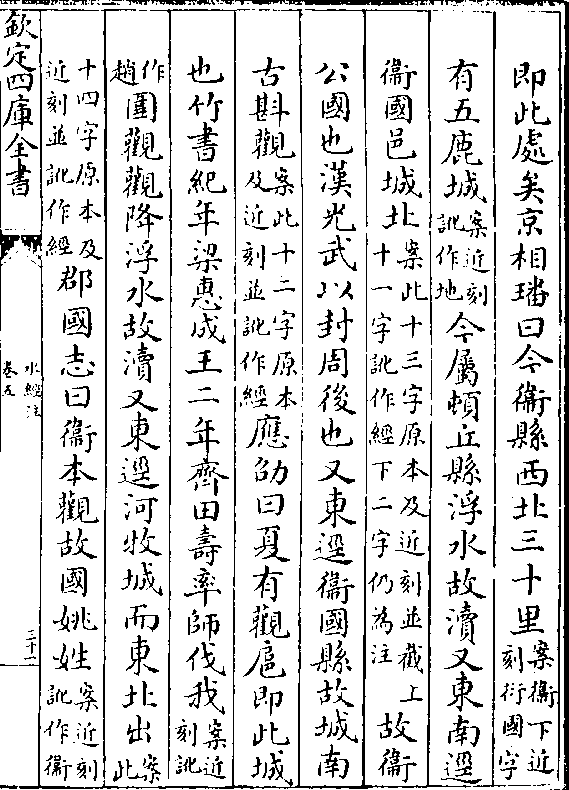 即此處矣京相璠曰今衞縣西北三十里案衞下近刻衍國字
有五鹿城案近刻訛作地今屬頓丘縣浮水故瀆又東南逕
衞國邑城北案此十三字原本及近刻並截上十一字訛作經下二字仍為注故衞
公國也漢光武以封周後也又東逕衞國縣故城南
古斟觀案此十二字原本及近刻並訛作經應劭曰夏有觀扈即此城
也竹書紀年梁惠成王二年齊田壽率師伐我案近刻訛
作趙圍觀觀降浮水故瀆又東逕河牧城而東北出案此
十四字原本及近刻並訛作經郡國志曰衞本觀故國姚姓案近刻訛作衞
欽定四庫全書
水經注
卷五
三十一